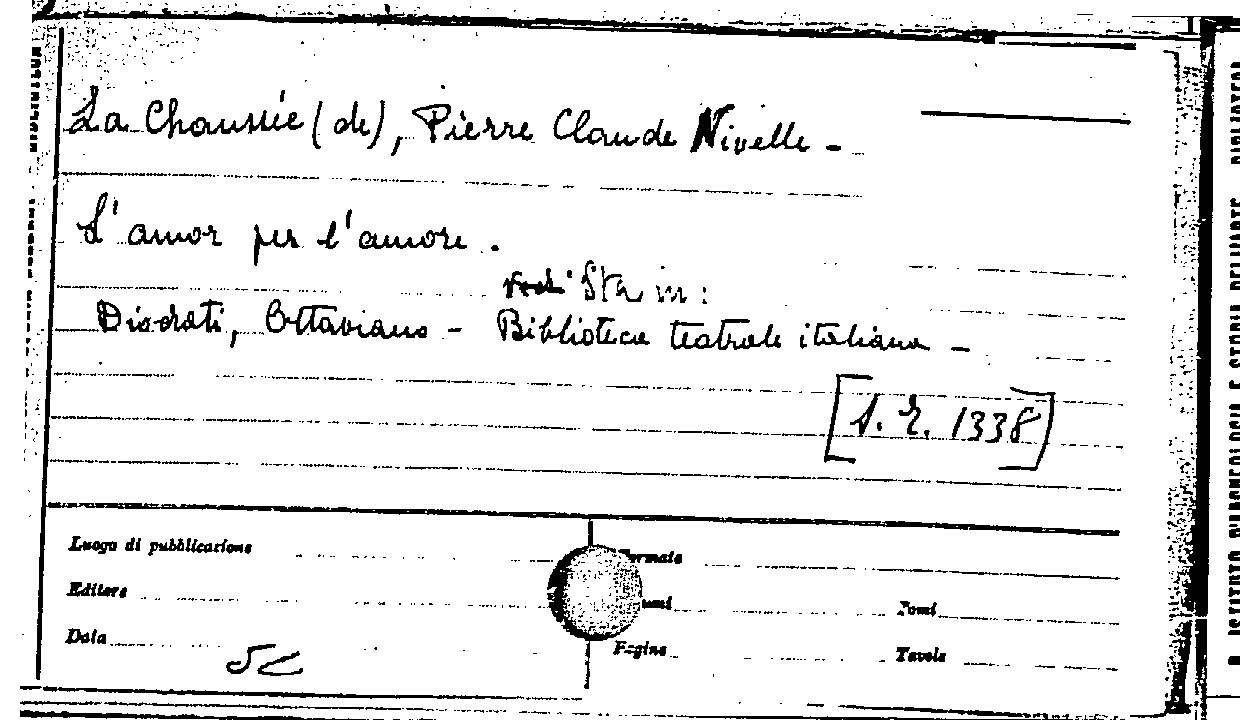 La Chaussée (de), Pierre Claude Nivelle -
L'amor per l'amore.
vedi Sta in:
Diodati, Ottaviano - Biblioteca teatrale italiana -
[S. R. 1338]
Luogo di pubblicazione
Formato
Editore
Tomi
Data
Pagine
Tavole
R. ISTITUTO D'ARCHEOLOGIA E STORIA DELL'ARTE BIBLIOTECA